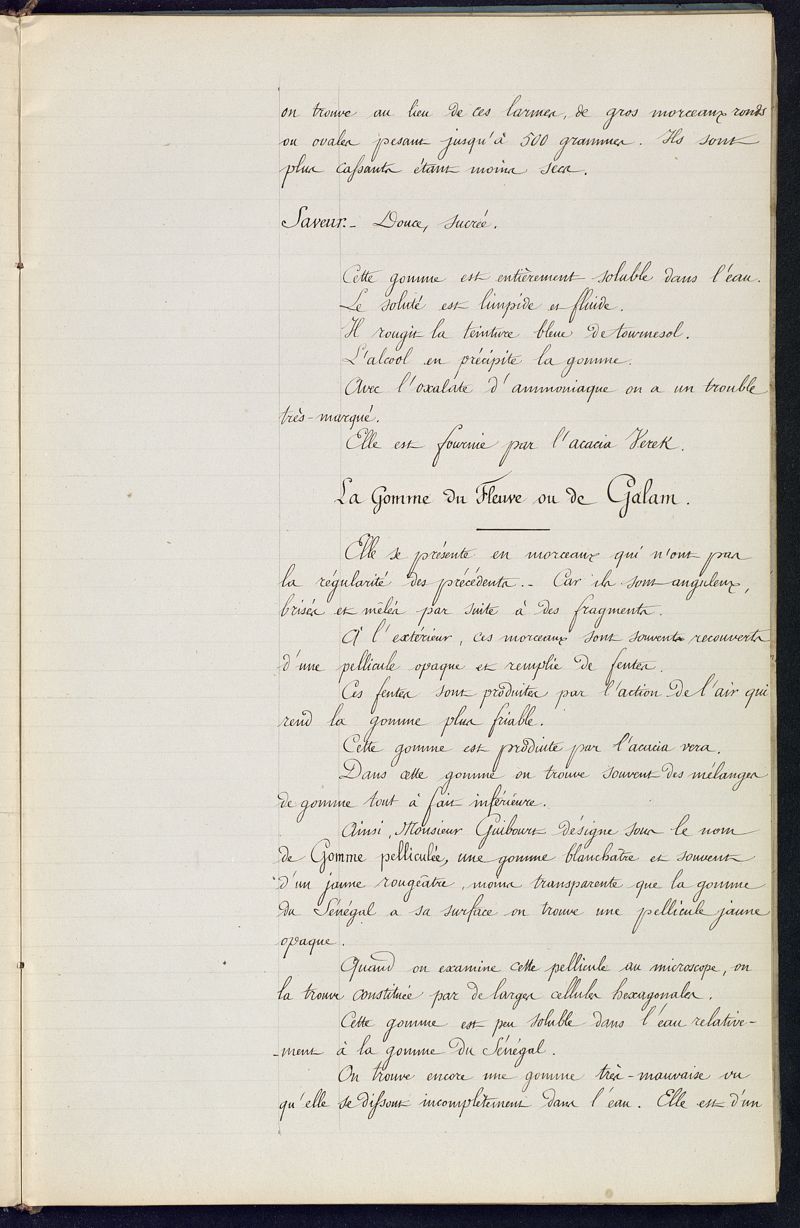 on trouve au lieu de ces larmes, de gros morceaux ronds
ou ovales pesant jusqu'à 500 grammes. Ils sont
plus cassants étant moins secs.
Saveur.- Douce, sucrée.
Cette gomme est entièrement soluble dans l'eau.
Le soluté est limpide et fluide.
Il rougit la teinture bleue de tournesol.
L'alcool en précipite la gomme.
Avec l'oxalate d'ammoniaque on a un trouble
très-marqué.
Elle est fournie par l'acacia Verek.
La Gomme du Fleuve ou de Galam.
Elle se présente en morceaux qui n'ont pas
la régularité des précédents.- Car ils sont anguleux,
brisés et mêlés par suite à des fragments.
A l'extérieur, ces morceaux sont souvents recouverts
d'une pellicule opaque et remplie de fentes.
Ces fentes sont produites par l'action de l'air qui
rend la gomme plus friable.
Cette gomme est produite par l'acacia vera.
Dans cette gomme on trouve souvent des mélanges
de gomme tout à fait inférieure.
Ainsi, Monsieur Guibourt désigne sous le nom
de Gomme pelliculée, une gomme blanchâtre et souvent
d'un jaune rougeâtre, moins transparente que la gomme
du Sénégal a sa surface on trouve une pellicule jaune
opaque.
Quand on examine cette pellicule au microscope, on
la trouve constituée par de larges cellules hexagonales.
Cette gomme est peu soluble dans l'eau relative-
-ment à la gomme du Sénégal.
On trouve encore une gomme très-mauvaise vu
qu'elle se dissout incomplètement dans l'eau. Elle est d'un